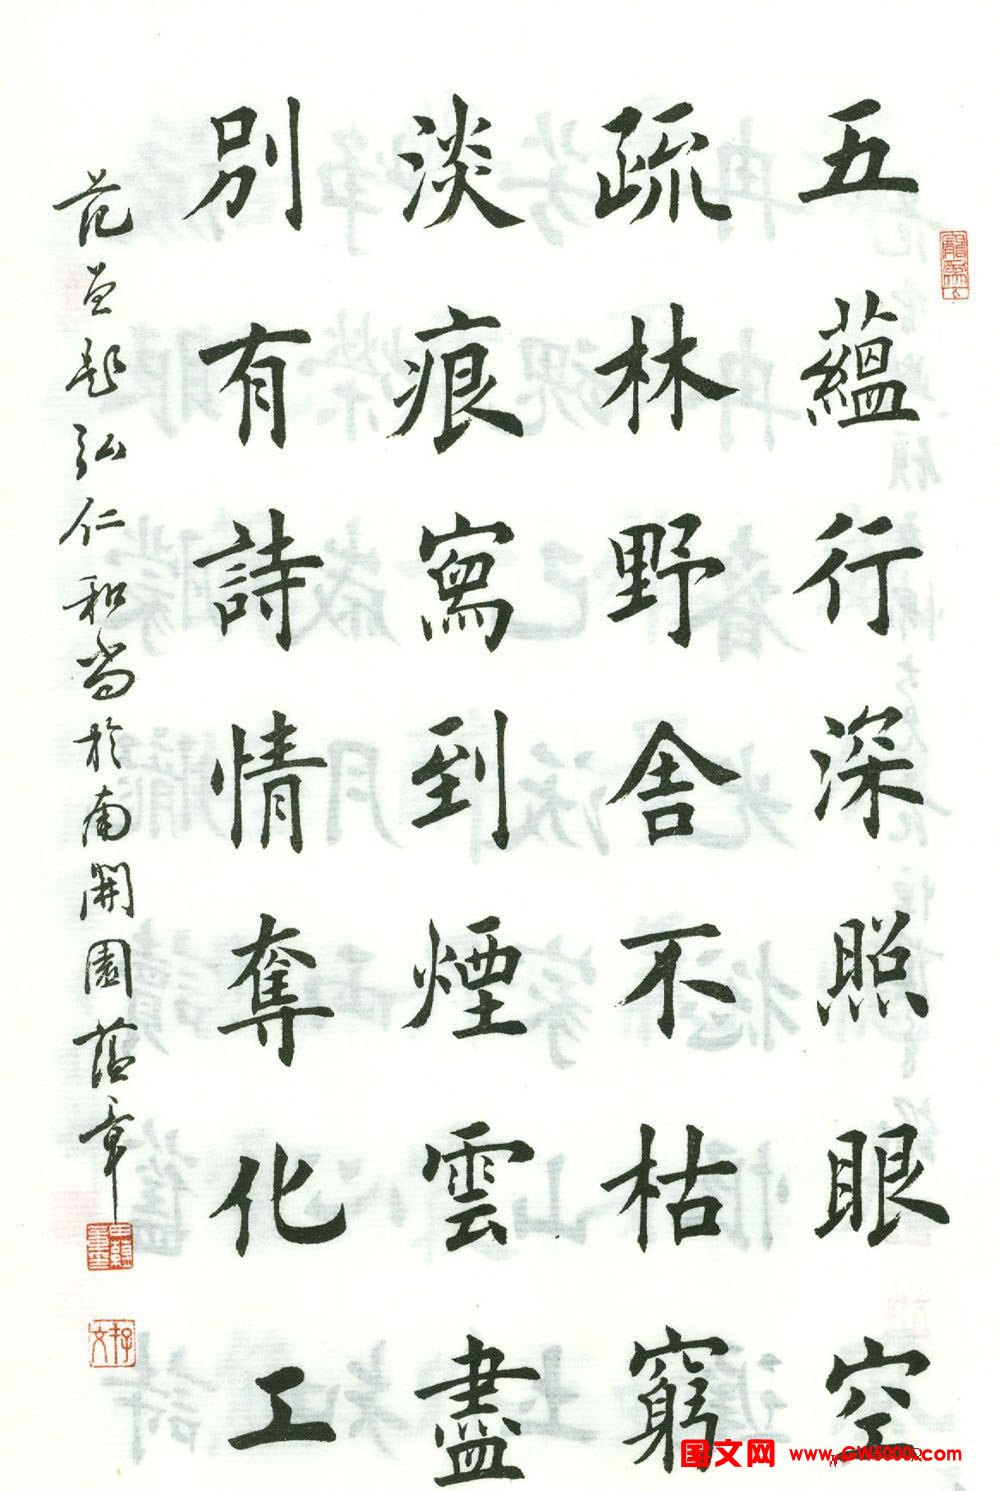 五蘊行深照眼空
疏林野舍不枯窮
淡痕寫到煙雲盡
別有詩情奪化工
范曾題弘仁和尚於南開園蔭章
国文网 www.GW5000.com